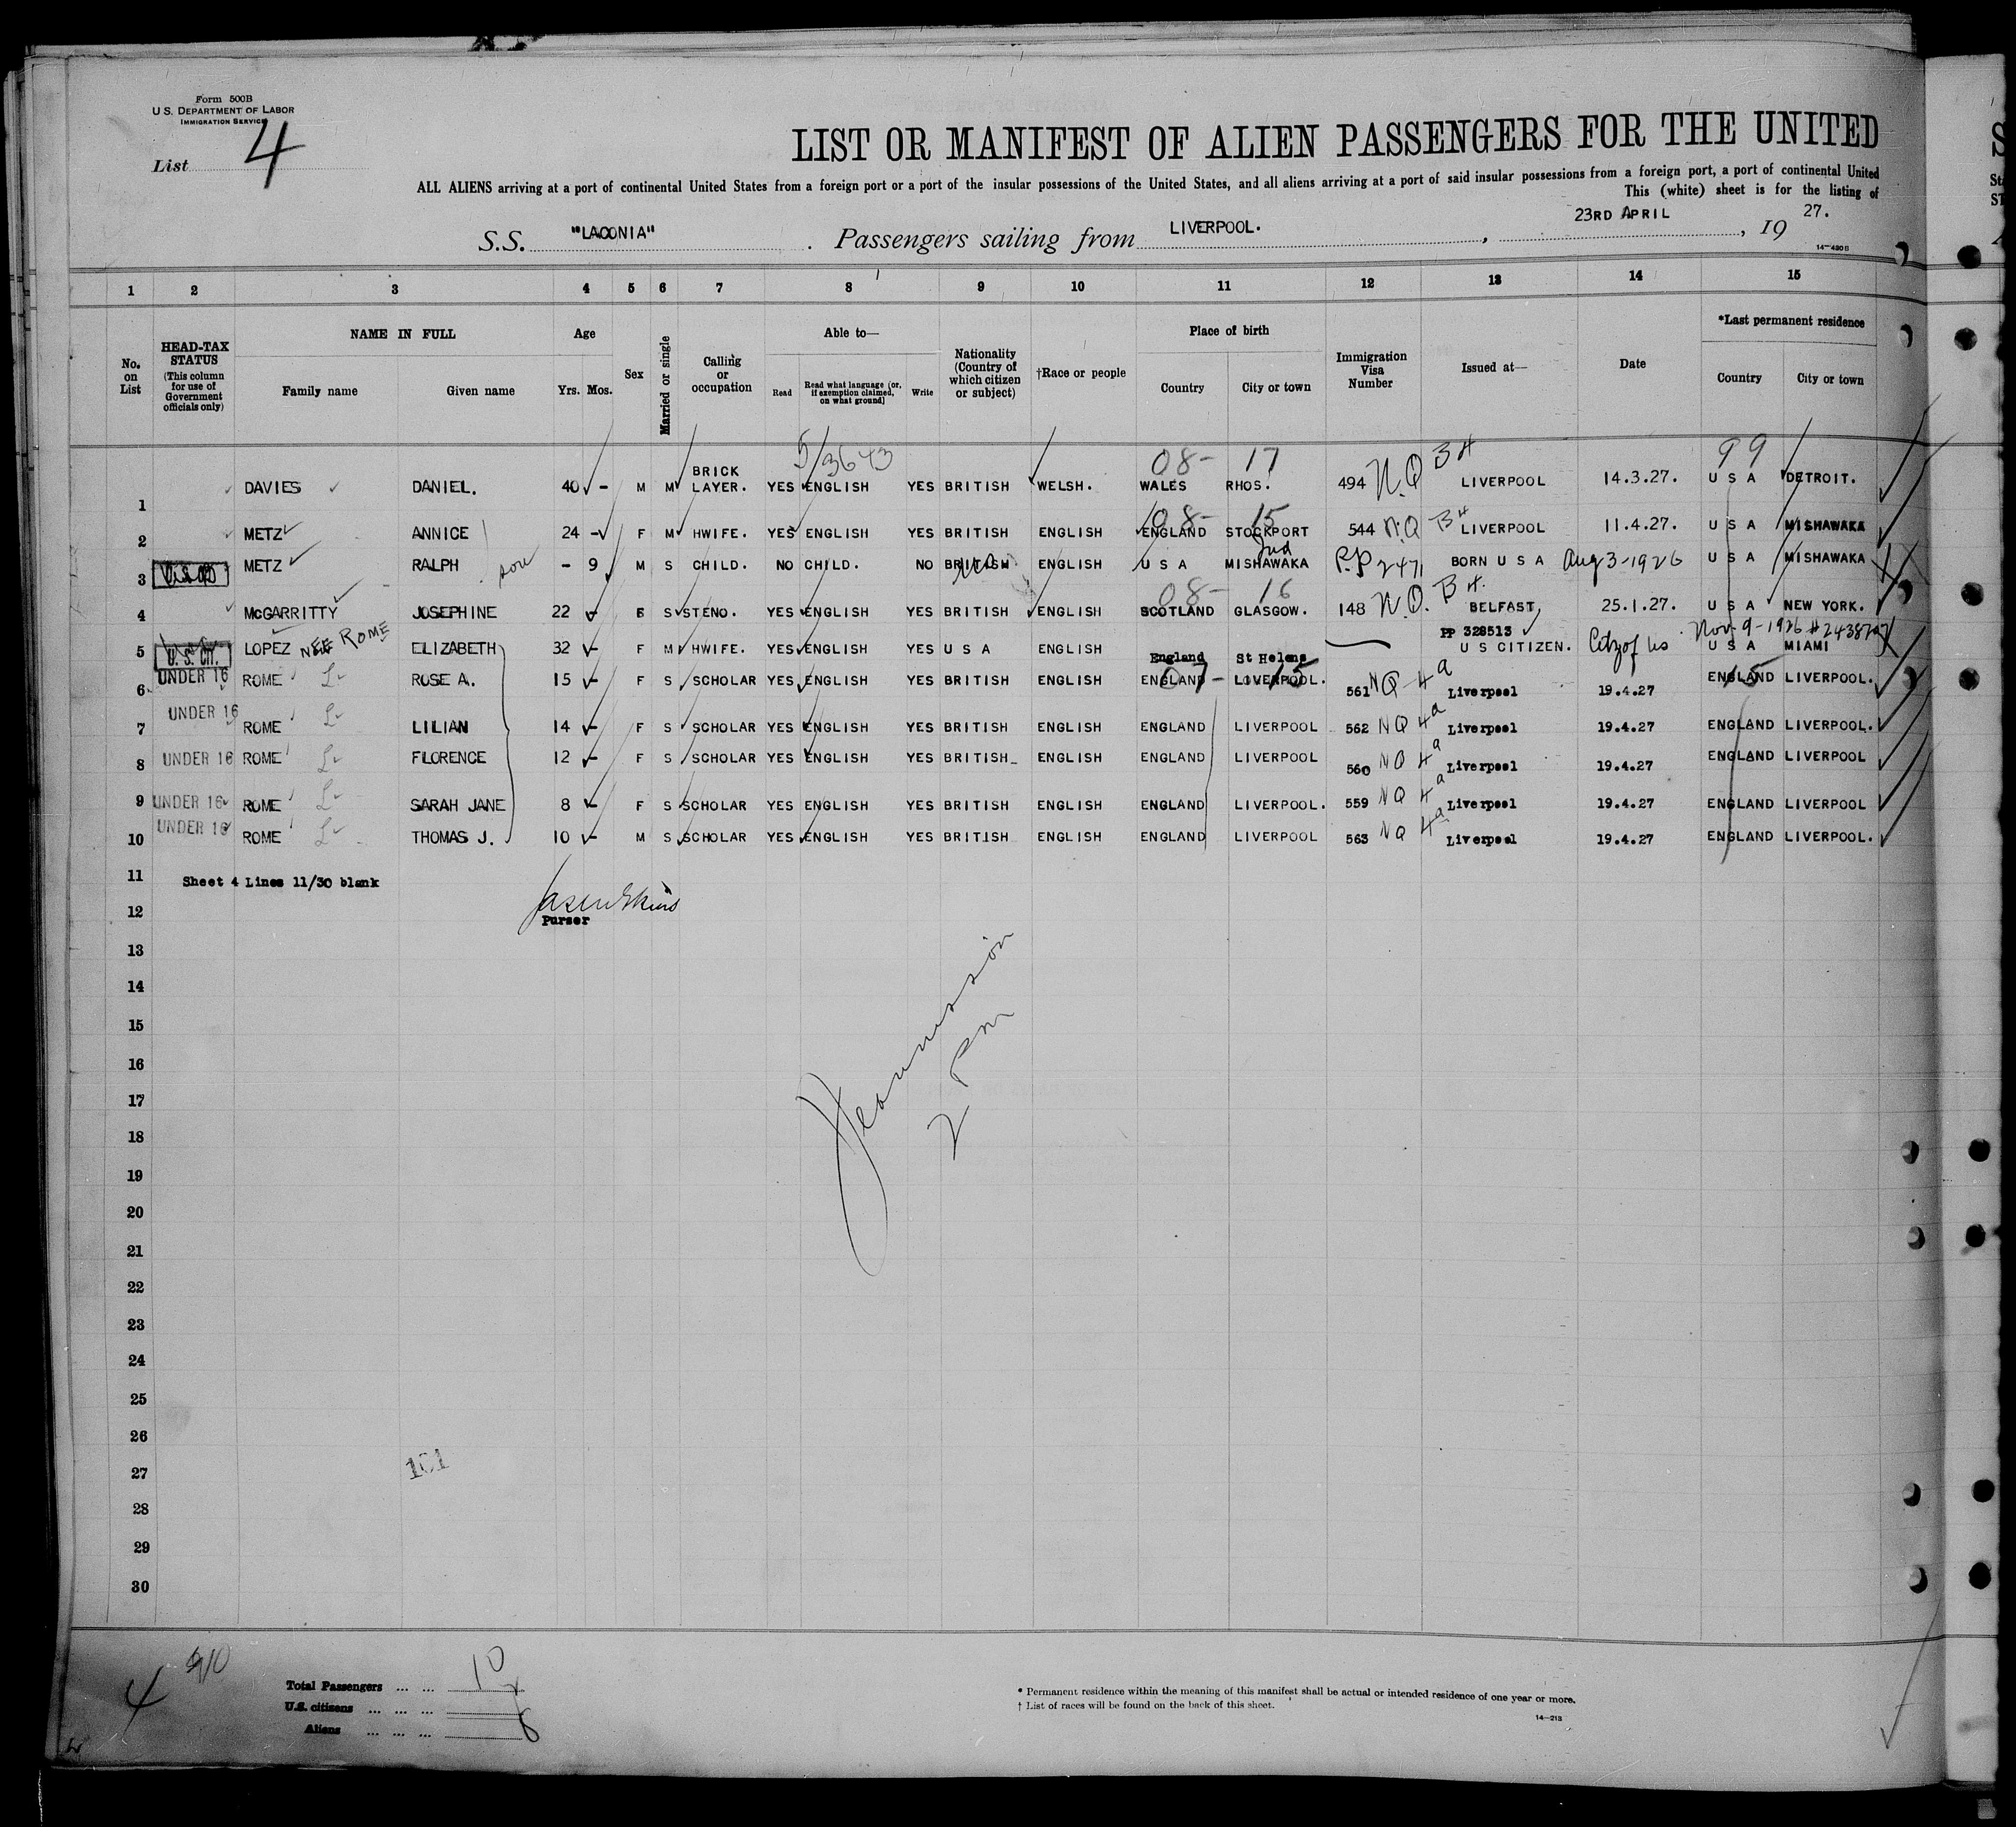 Form 500B
U. S. DEPARTMENT OF LABOR
IMMIGRATION SERVICE
List 4
LIST OR MANIFEST OF ALIEN PASSENGERS FOR THE UNITED
ALL ALIENS arriving at a port of continental United States from a foreign port or a port of the insular possessions of the United States, and all aliens arriving at a port of said insular possessions from a foreign port, a port of continental United
This (white) sheet is for the listing of
S.S. "LACONIA" . Passengers sailing from LIVERPOOL. , 23RD APRIL , 19 27.
14-430B
1 2 3 4 5 6 7 8 9 10 11 12 13 14 15
No. on List
HEAD-TAX STATUS (This column for use of Government officials only)
NAME IN FULL
Family name Given name
Age
Yrs. Mos.
Sex
Married or single
Calling or occupation
Able to—
Read Read what language (or, if exemption claimed, on what ground) Write
Nationality (Country of which citizen or subject)
†Race or people
Place of birth
Country City or town
Immigration Visa Number
Issued at—
Date
*Last permanent residence
Country City or town
5/3643 08- 17 99
1 DAVIES DANIEL. 40 - M M BRICK LAYER. YES ENGLISH YES BRITISH WELSH. WALES RHOS. 494 N.Q B4 LIVERPOOL 14.3.27. U S A DETROIT.
08- 15
2 METZ ANNICE 24 - F M HWIFE. YES ENGLISH YES BRITISH ENGLISH ENGLAND STOCKPORT 544 N.Q B4 LIVERPOOL 11.4.27. U S A MISHAWAKA
Ind
3 METZ RALPH son - 9 M S CHILD. NO CHILD. NO BRITISH ENGLISH U S A MISHAWAKA P.P 2471 BORN U S A Aug 3-1926 U S A MISHAWAKA
08- 16
4 McGARRITTY JOSEPHINE 22 - F S STENO. YES ENGLISH YES BRITISH ENGLISH SCOTLAND GLASGOW. 148 N.Q. B4. BELFAST 25.1.27. U S A NEW YORK.
PP 328513 Nov 9-1926
5 U. S. CIT. LOPEZ NEE ROME ELIZABETH 32 - F M HWIFE. YES ENGLISH YES U S A ENGLISH England St Helens U S CITIZEN. Citz of US U S A MIAMI
07- 15 15
6 UNDER 16 ROME ROSE A. 15 - F S SCHOLAR YES ENGLISH YES BRITISH ENGLISH ENGLAND LIVERPOOL. 561 NQ 4a Liverpool 19.4.27 ENGLAND LIVERPOOL.
7 UNDER 16 ROME LILIAN 14 - F S SCHOLAR YES ENGLISH YES BRITISH ENGLISH ENGLAND LIVERPOOL 562 NQ 4a Liverpool 19.4.27 ENGLAND LIVERPOOL.
8 UNDER 16 ROME FLORENCE 12 - F S SCHOLAR YES ENGLISH YES BRITISH ENGLISH ENGLAND LIVERPOOL 560 NQ 4a Liverpool 19.4.27 ENGLAND LIVERPOOL
9 UNDER 16 ROME SARAH JANE 8 - F S SCHOLAR YES ENGLISH YES BRITISH ENGLISH ENGLAND LIVERPOOL. 559 NQ 4a Liverpool 19.4.27 ENGLAND LIVERPOOL
10 UNDER 16 ROME THOMAS J. 10 - M S SCHOLAR YES ENGLISH YES BRITISH ENGLISH ENGLAND LIVERPOOL 563 NQ 4a Liverpool 19.4.27 ENGLAND LIVERPOOL.
11 Sheet 4 Lines 11/30 blank
12 Purser
13
14
15
16
17
2 Pm
18
19
20
21
22
23
24
25
26
27 101
28
29
30
4
Total Passengers ... ... 10
U.S. citizens ... ... ...
Aliens ... ... ... 8
* Permanent residence within the meaning of this manifest shall be actual or intended residence of one year or more.
† List of races will be found on the back of this sheet.
14-213